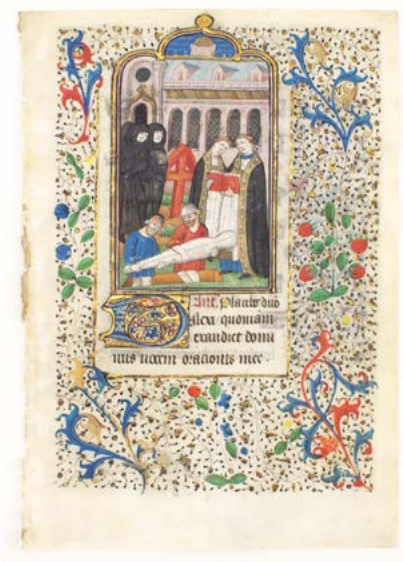 Ant. Placebo dno
Dilexi quoniam
exaudiet domi
nus uocem oracionis mee